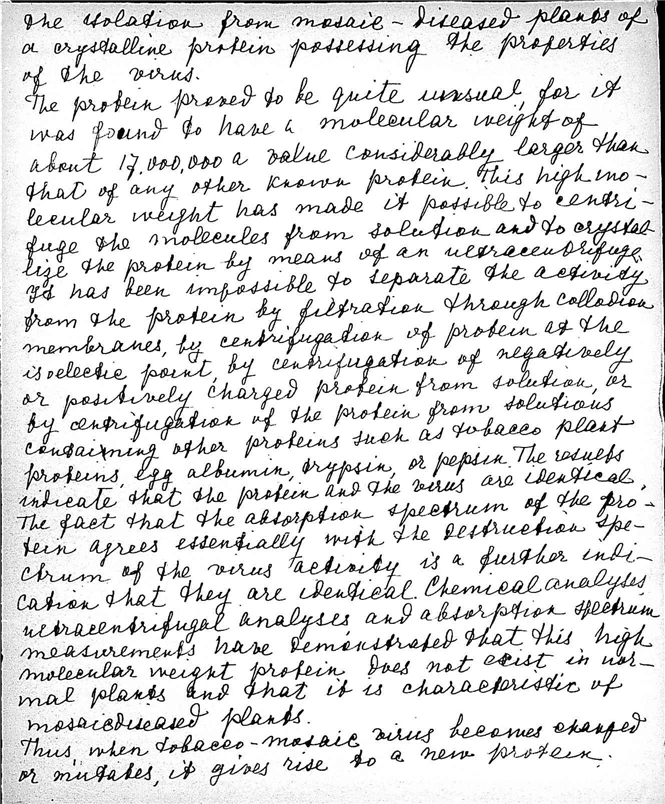 the isolation from mosaic - diseased plants of
a crystalline protein possessing the properties
of the virus.
The protein proved to be quite unusual, for it
was found to have a molecular weight of
about 17,000,000 a value considerably larger than
that of any other known protein. This high mo-
lecular weight has made it possible to centri-
fuge the molecules from solution and to crystal-
lize the protein by means of an ultracentrifuge.
It has been impossible to separate the activity
from the protein by filtration through collodion
membranes, by centrifugation of protein at the
isoelectic point, by centrifugation of negatively
or positively charged protein from solution, or
by centrifugation of the protein from solutions
containing other proteins such as tobacco plant
proteins, egg albumin, trypsin, or pepsin. The results
indicate that the protein and the virus are identical.
The fact that the absorption spectrum of the pro-
tein agrees essentially with the destruction spe-
ctrum of the virus activity is a further indi-
cation that they are identical. Chemical analyses,
ultracentrifugal analyses and absorption spectrum
measurements have demonstrated that this high
molecular weight protein does not exist in nor-
mal plants and that it is characteristic of
mosaicdiseased plants.
Thus when tobacco-mosaic virus becomes changed
or mutates, it gives rise to a new protein.